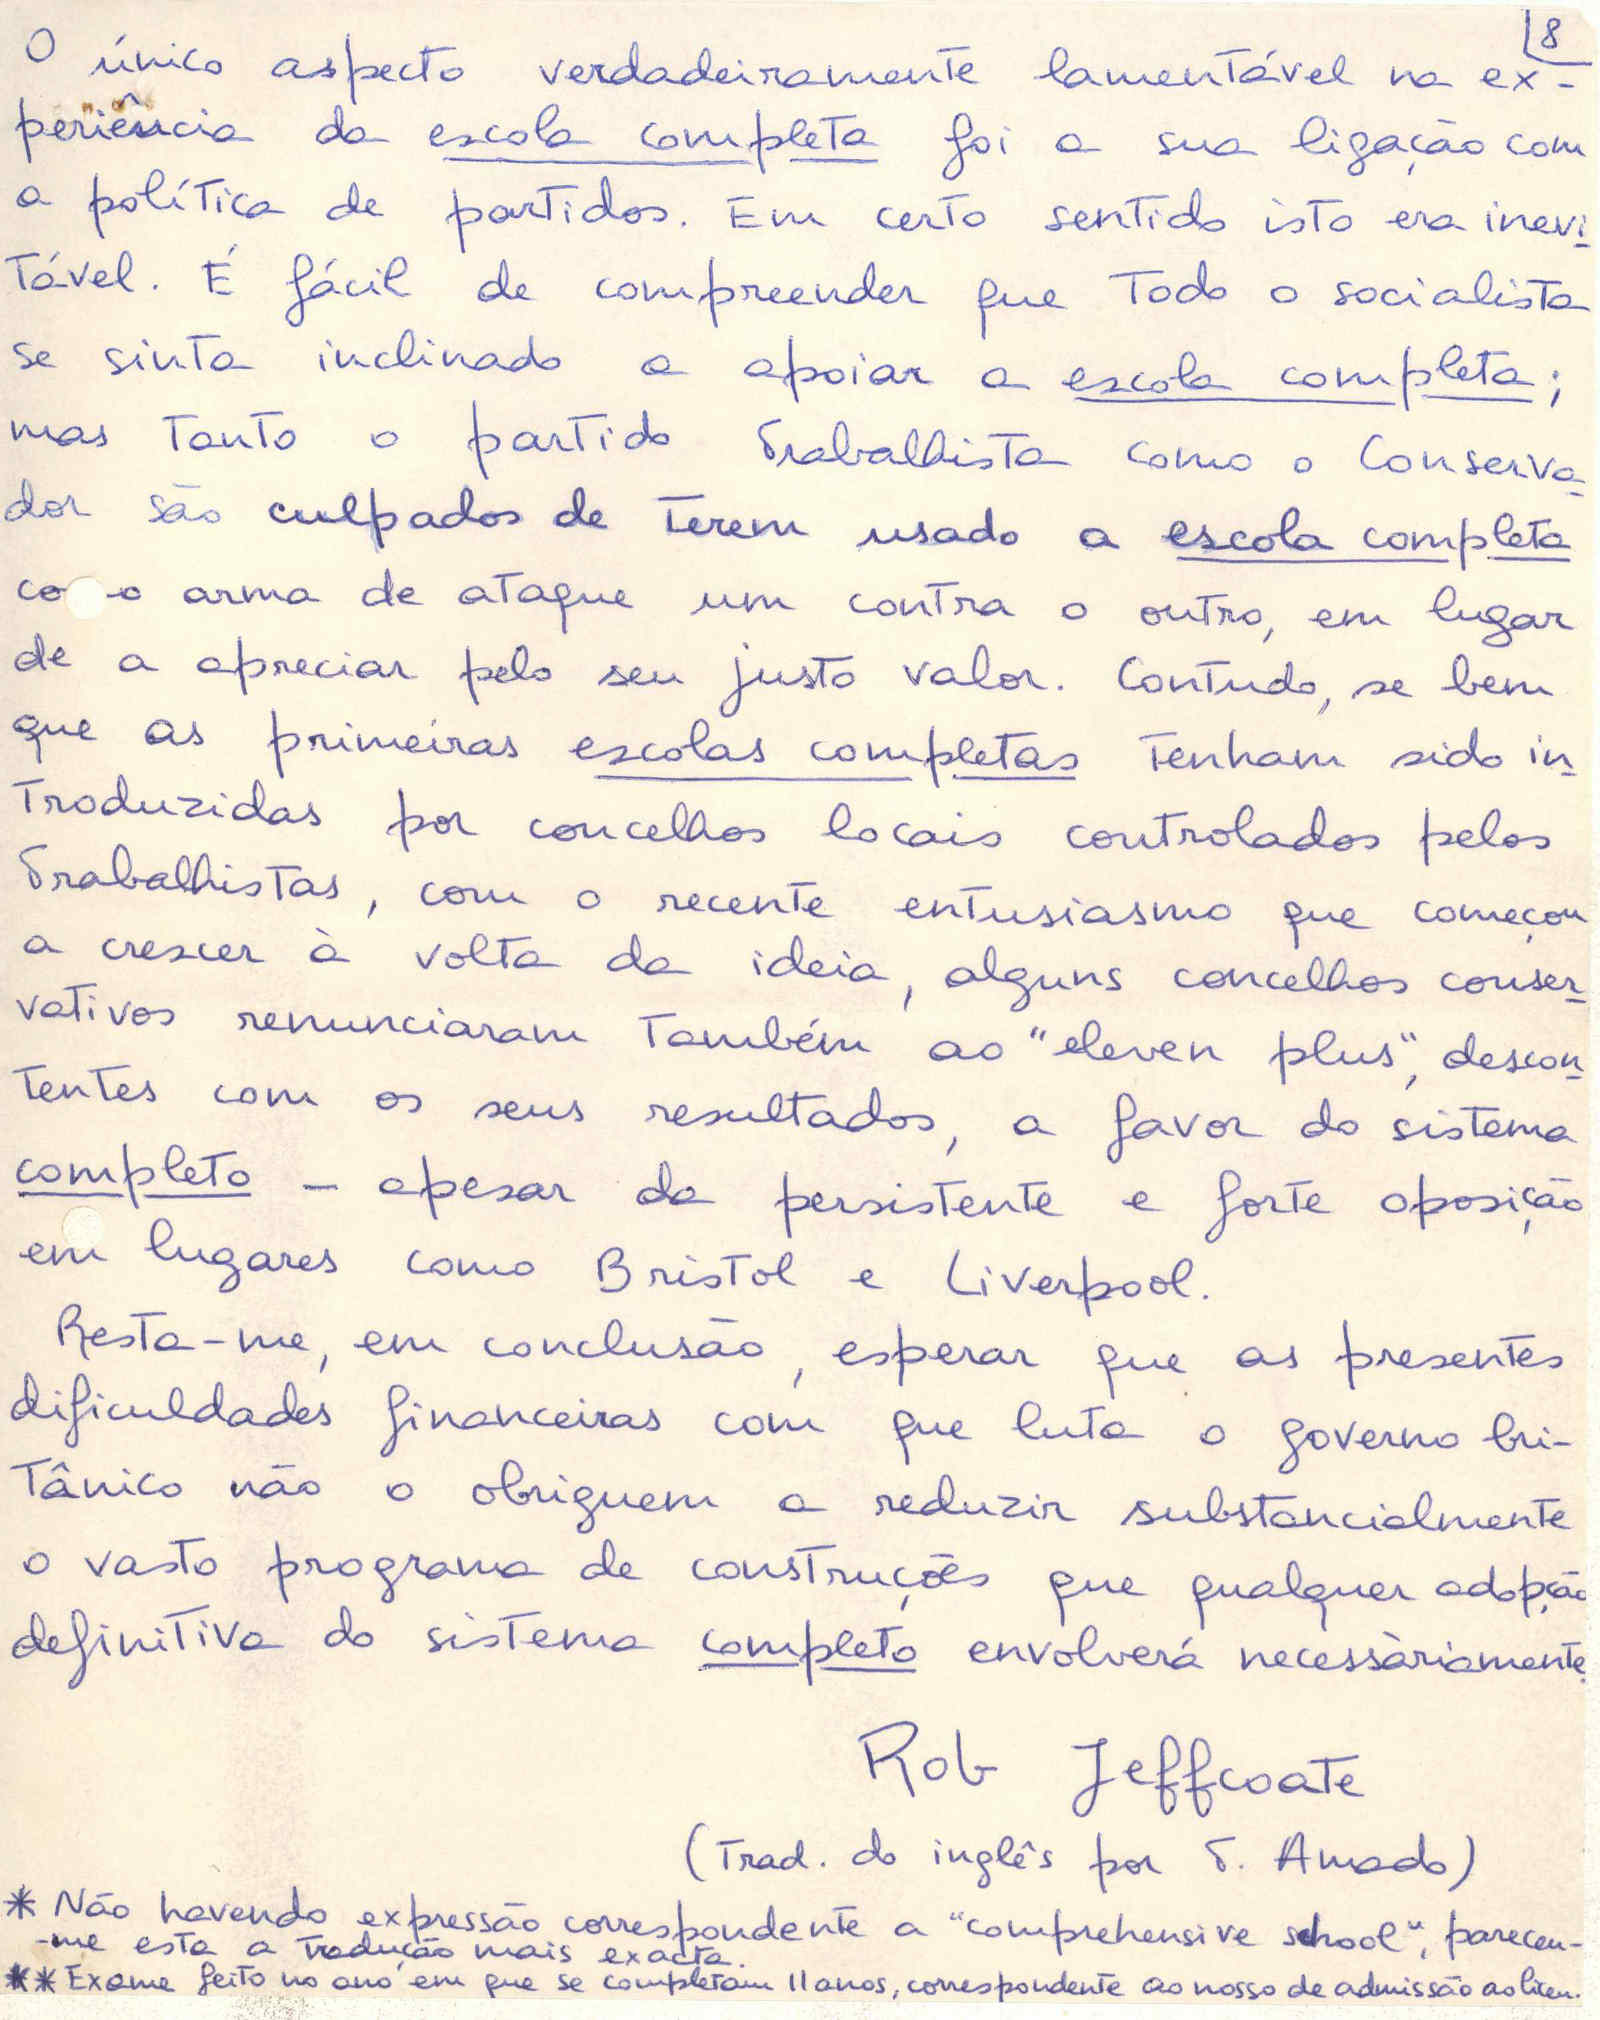 8
O único aspecto verdadeiramente lamentável na ex-
periência da escola completa foi a sua ligação com
a política de partidos. Em certo sentido isto era inevi-
tável. É fácil de compreender que todo o socialista
se sinta inclinado a apoiar a escola completa;
mas tanto o partido Trabalhista como o Conserva-
dor são culpados de terem usado a escola completa
como arma de ataque um contra o outro, em lugar
de a apreciar pelo seu justo valor. Contudo, se bem
que as primeiras escolas completas tenham sido in-
troduzidas por concelhos locais controlados pelos
Trabalhistas, com o recente entusiasmo que começou
a crescer à volta da ideia, alguns concelhos conser-
vativos renunciaram também ao "eleven plus", descon-
tentes com os seus resultados, a favor do sistema
completo - apesar da persistente e forte oposição
em lugares como Bristol e Liverpool.
Resta-me, em conclusão, esperar que as presentes
dificuldades financeiras com que luta o governo bri-
tânico não o obriguem a reduzir substancialmente
o vasto programa de construções que qualquer adopção
definitiva do sistema completo envolverá necessàriamente.
Rob Jeffcoate
(Trad. do inglês por T. Amado)
* Não havendo expressão correspondente a "comprehensive school", pareceu-
-me esta a tradução mais exacta.
** Exame feito no ano em que se completam 11 anos, correspondente ao nosso de admissão ao liceu.